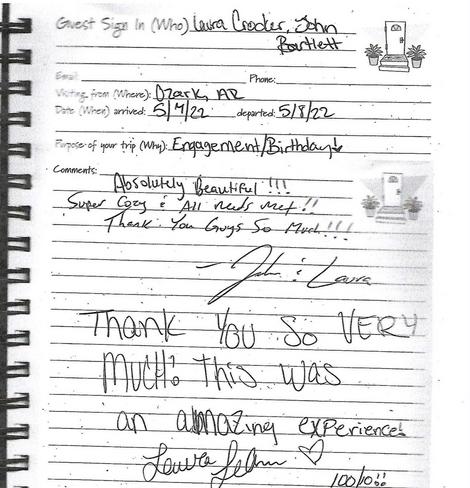 Guest Sign In (Who) Laura Crooker, John
Bartlett
Email Phone:
Visiting from (Where): Ozark, AR
Date (When) arrived: 5/7/22 departed: 5/8/22
Purpose of your trip (Why): Engagement/Birthday!
Comments:
Absolutely Beautiful!!!
Super Cozy & All needs met!!
Thank You Guys So Much!!!
- John & Laura
Thank You So VERY
MUCH! This was
an amazing experience!
Laura
100/10!!